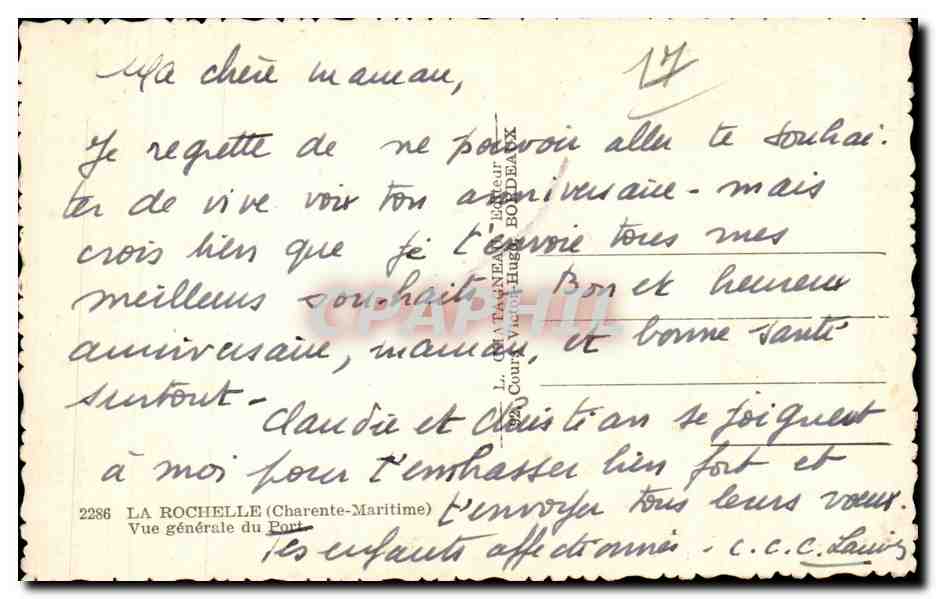 17
Ma chère maman,
Je regrette de ne pouvoir aller te souhai-
ter de vive voix ton anniversaire - mais
crois bien que je t'envoie tous mes
meilleurs souhaits. Bon et heureux
anniversaire, maman, et bonne santé
surtout -
Claudie et Christian se joignent
à moi pour t'embrasser bien fort et
t'envoyer tous leurs voeux.
Tes enfants affectionnés - C. C. C.
2286 LA ROCHELLE (Charente-Maritime)
Vue générale du Port
L. CHATAGNEAU Editeur
92, Cours Victor-Hugo, BORDEAUX
CPAPHIL